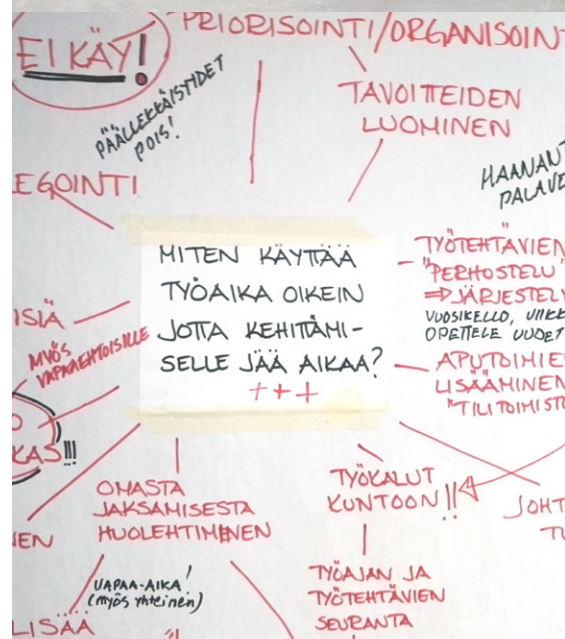 EI KÄY!
PRIORISOINTI/ORGANISOINT
PÄÄLLEKKÄISYYDET
POIS!
TAVOITTEIDEN
LUOMINEN
EGOINTI
MITEN KÄYTTÄÄ
TYÖAIKA OIKEIN
JOTTA KEHITTÄMI-
SELLE JÄÄ AIKAA?
+++
TYÖTEHTÄVIEN
"PERHOSTELU"
⇒ JÄRJESTELY
VUOSIKELLO, VIIKK
OPETTELE UUDET
ISIÄ
MYÖS
VAPAAEHTOISILLE
APUTOIMIE
LISÄÄMINEN
"TILITOIMISTO
KAS!!!
OMASTA
JAKSAMISESTA
HUOLEHTIMINEN
TYÖKALUT
KUNTOON!!
JOHT
NEN
VAPAA-AIKA!
(myös yhteinen)
TYÖAJAN JA
TYÖTEHTÄVIEN
SEURANTA
LISÄÄ